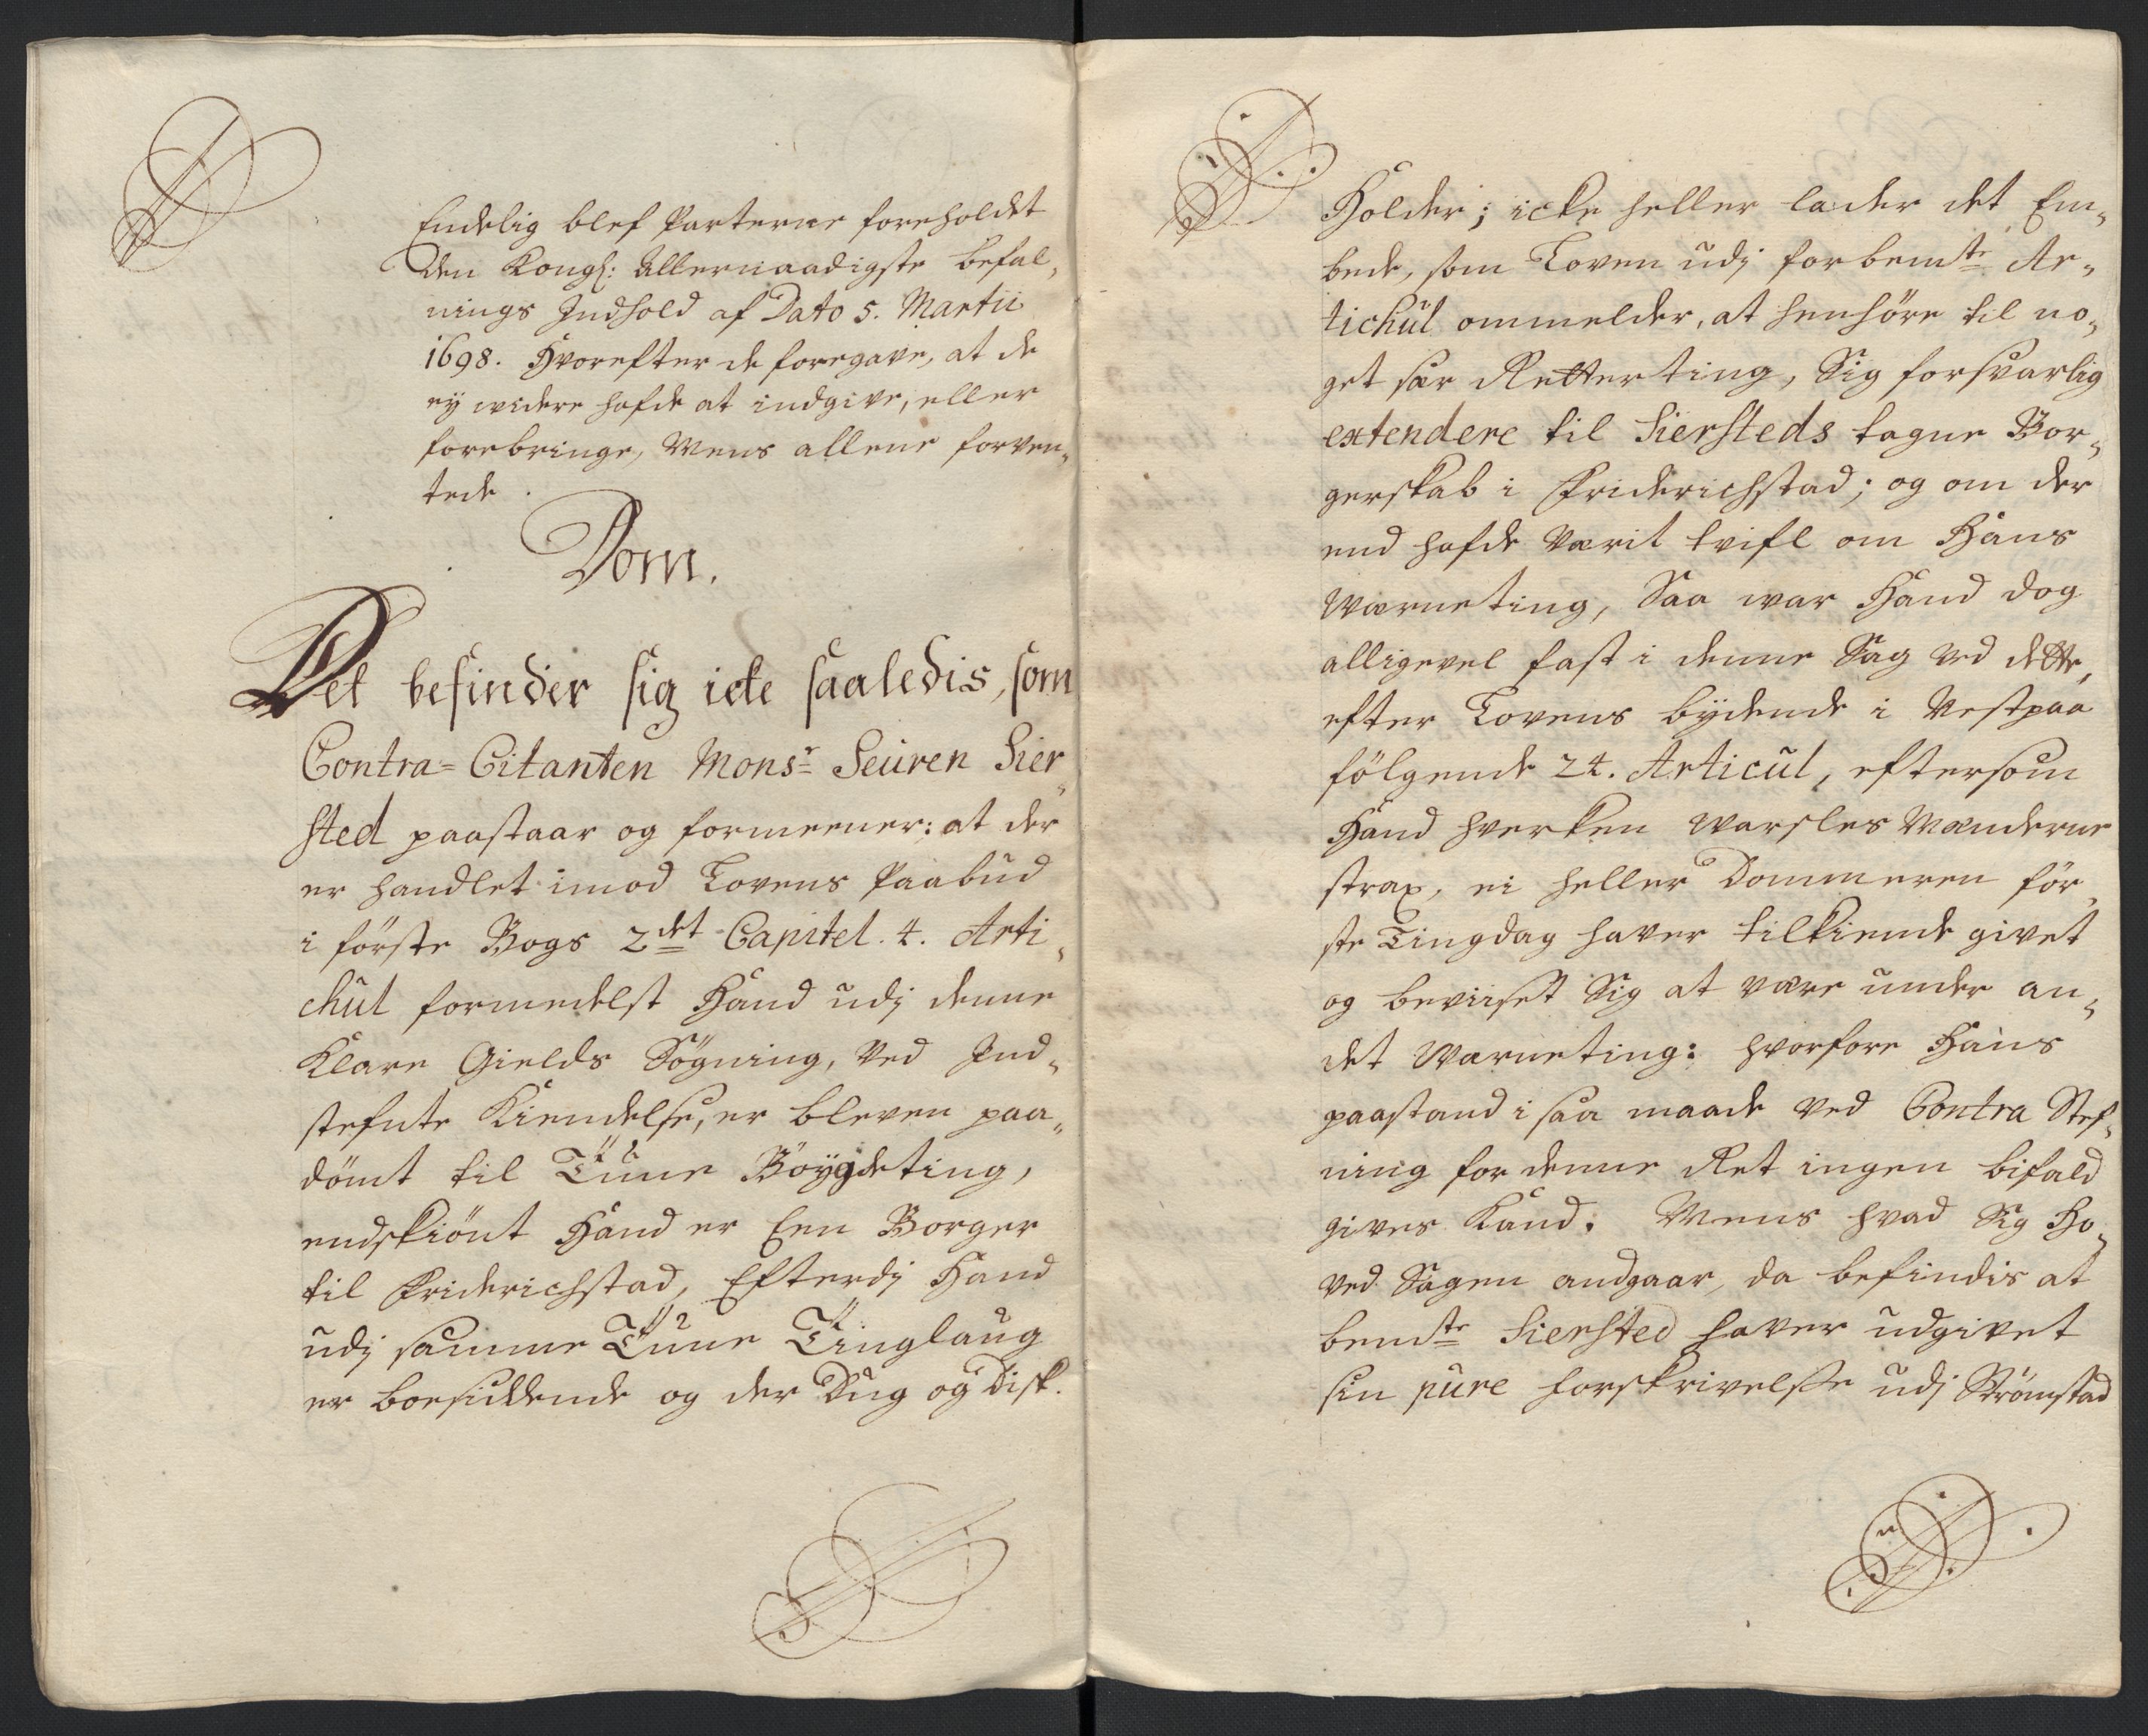 Endelig blef Parterne foreholdet
den Kongl: Allernaadigste befal,
nings Indhold af Dato 5. Martii
1698. Hvorefter de foregave, at de
ey widere hafde at indgive, eller
forebringe, Mens allene forven,
tede
Dom.
Det befinder sig icke saaledis, som
Contra-Citanten Monsr Seuren Sier,
sted paastaar og formeener: at der
er handlet imod Lovens Paabud
i förste Bogs 2det Capitel. 4. Arti,
chul formedelst Hand udj denne
Klare Gields Sögning, Ved Ind,
stefnte Kiendelse, er bleven paa,
dömt til Tune Böygdeting,
endskiönt Hand er Een Borger
til Friderichstad, Efterdj Hand
udj samme Tune Tinglaug
er boesiddende og der Dug og Disk.
Holder; icke heller lader det Em,
bede, som Loven udj forbemte Ar,
tichul ommelder, at henhöre til no,
get sær Retterting, Sig forsvarlig
extendere til Siersteds tagne Bor,
gerskab i Friderichstad; og om der
end hafde Værit tvifl om Hans
Wærneting, Saa war Hand dog
alligevel fast i denne Sag ved dette,
efter Lovens bydende i Nestpaa
fölgende 24. Articul, eftersom
Hand hverken Warsles Mænderne
strax, ei heller Dommeren för,
ste Tingdag haver tilkiende givet
og beviiset Sig at være under an,
det Warneting: hvorfore Hans
paastand i saa maade ved Contra Stef,
ning for denne Ret ingen bifald
gives Kand. Mens hvad Sig Ho,
ved Sagen andgaar, da befindis at
bemte Siersted haver udgivet
sin pure forskrivelse udj Strömstad